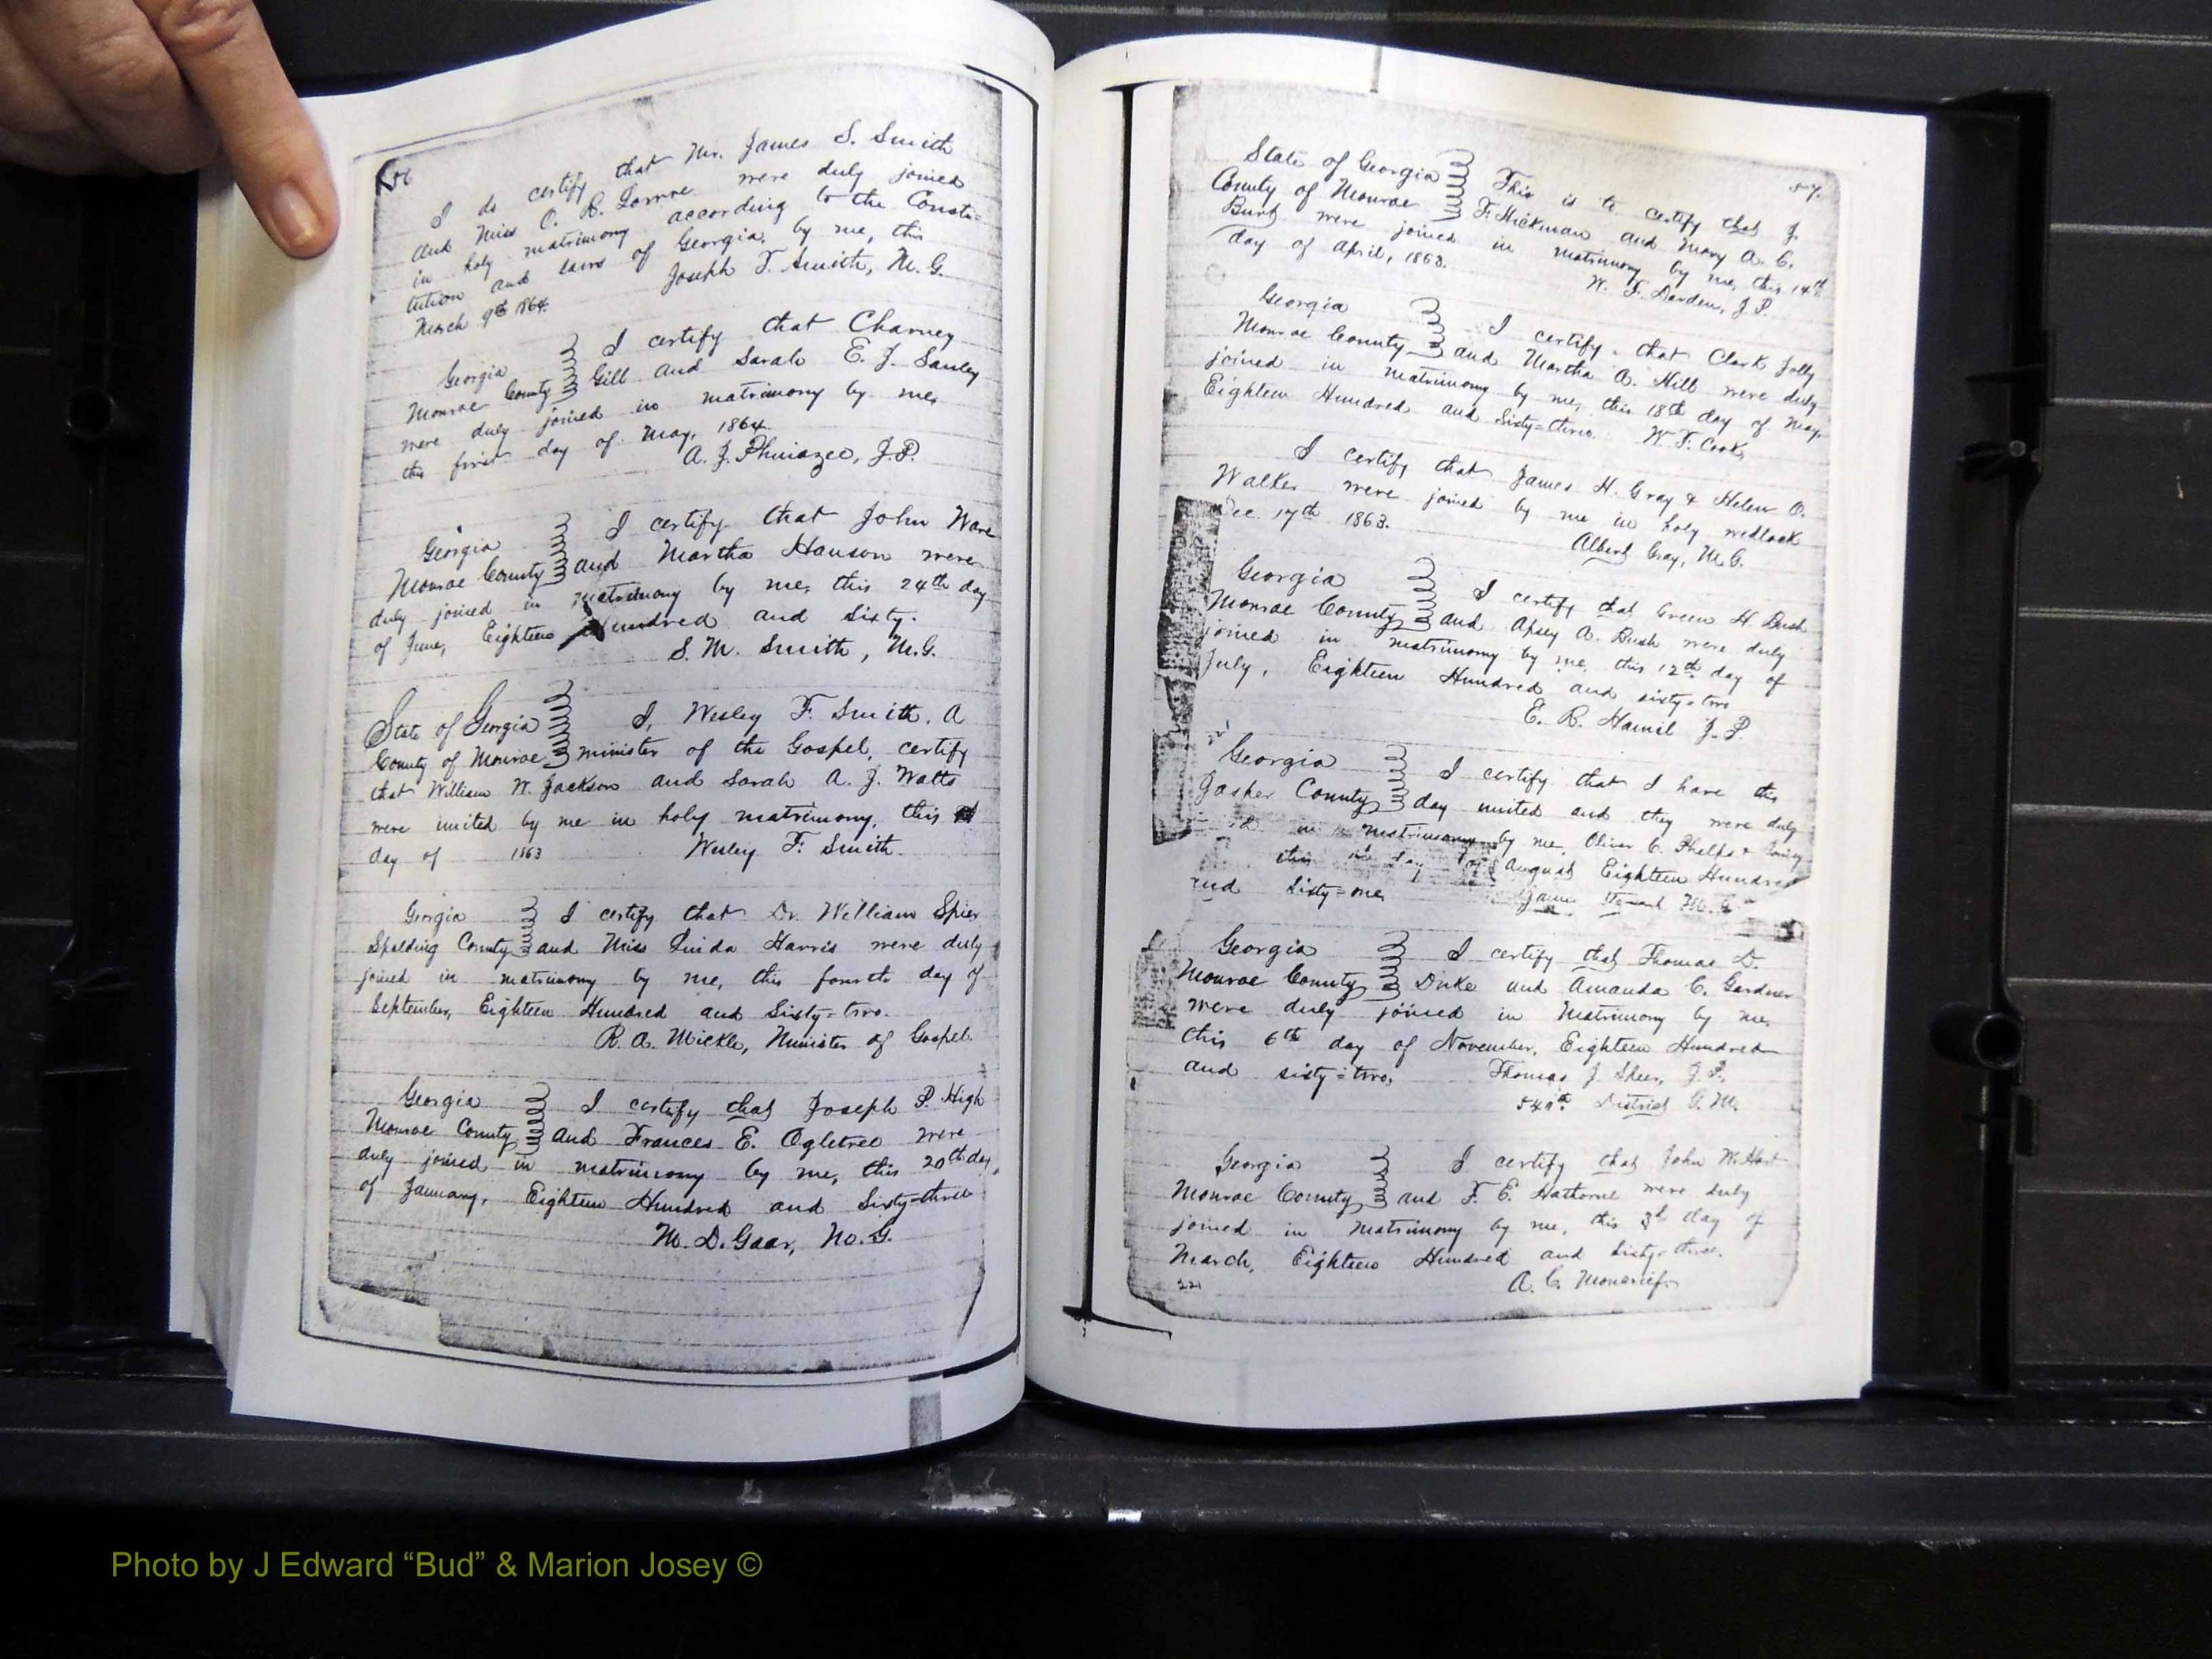 56
I do certify that Mr. James S. Smith
and Miss O. R. were duly joined
in holy matrimony according to the Consti=
tution and laws of Georgia, by me, this
March 9th 1864. Joseph T. Smith, M. G.
Georgia I certify that Charney
Monroe County Gill and Sarah E. J. Sanley
were duly joined in matrimony by me,
this first day of May, 1864.
A. J. Phinazee, J. P.
Georgia I certify that John Ware
Monroe County and Martha Hanson were
duly joined in matrimony by me, this 24th day
of June, Eighteen Hundred and Sixty.
S. M. Smith, M. G.
State of Georgia I, Wesley F. Smith, A
County of Monroe minister of the Gospel, certify
that William W. Jackson and Sarah A. J. Watts
were united by me in holy matrimony, this
day of 1863 Wesley F. Smith.
Georgia I certify that Dr. William Spier
Spalding County and Miss Linda Harris were duly
joined in matrimony by me, this fourth day of
September, Eighteen Hundred and Sixty=two.
R. A. Mickle, Minister of Gospel.
Georgia I certify that Joseph P. High
Monroe County and Frances E. Ogletree were
duly joined in matrimony by me, this 20th day
of January, Eighteen Hundred and Sixty=three
M. D. Gaar, M. G.
57.
State of Georgia This is to certify that J.
County of Monroe F. Hickman and Mary A. C.
Burt were joined in matrimony by me, this 14th
day of April, 1863.
W. F. Darden, J. P.
Georgia I certify that Clark Jolly
Monroe County and Martha A. Hill were duly
joined in matrimony by me, this 18th day of May,
Eighteen Hundred and Sixty=three. W. F. Cook,
I certify that James H. Gray & Helen O.
Walker were joined by me in holy wedlock
Dec. 17th 1863.
Albert Gray, M. G.
Georgia I certify that Green H. Bush
Monroe County and Apsey A. Bush were duly
joined in matrimony by me, this 12th day of
July, Eighteen Hundred and sixty=two
E. R. Hamil J. P.
Georgia I certify that I have this
Jasper County day united and they were duly
in matrimony by me, Oliver C. Phelps &
this day of August Eighteen Hundred
and Sixty=one,
M. G.
Georgia I certify that Thomas D.
Monroe County Duke and Amanda C. Gardner
were duly joined in Matrimony by me,
this 6th day of November, Eighteen Hundred
and sixty=two, Thomas J. J. P.
District G. M.
Georgia I certify that John W. Hart
Monroe County and F. E. Hathorne were duly
joined in matrimony by me, this 3d day of
March, Eighteen Hundred and Sixty=three.
221 A. C. Moncrief.
Photo by J Edward “Bud” & Marion Josey ©